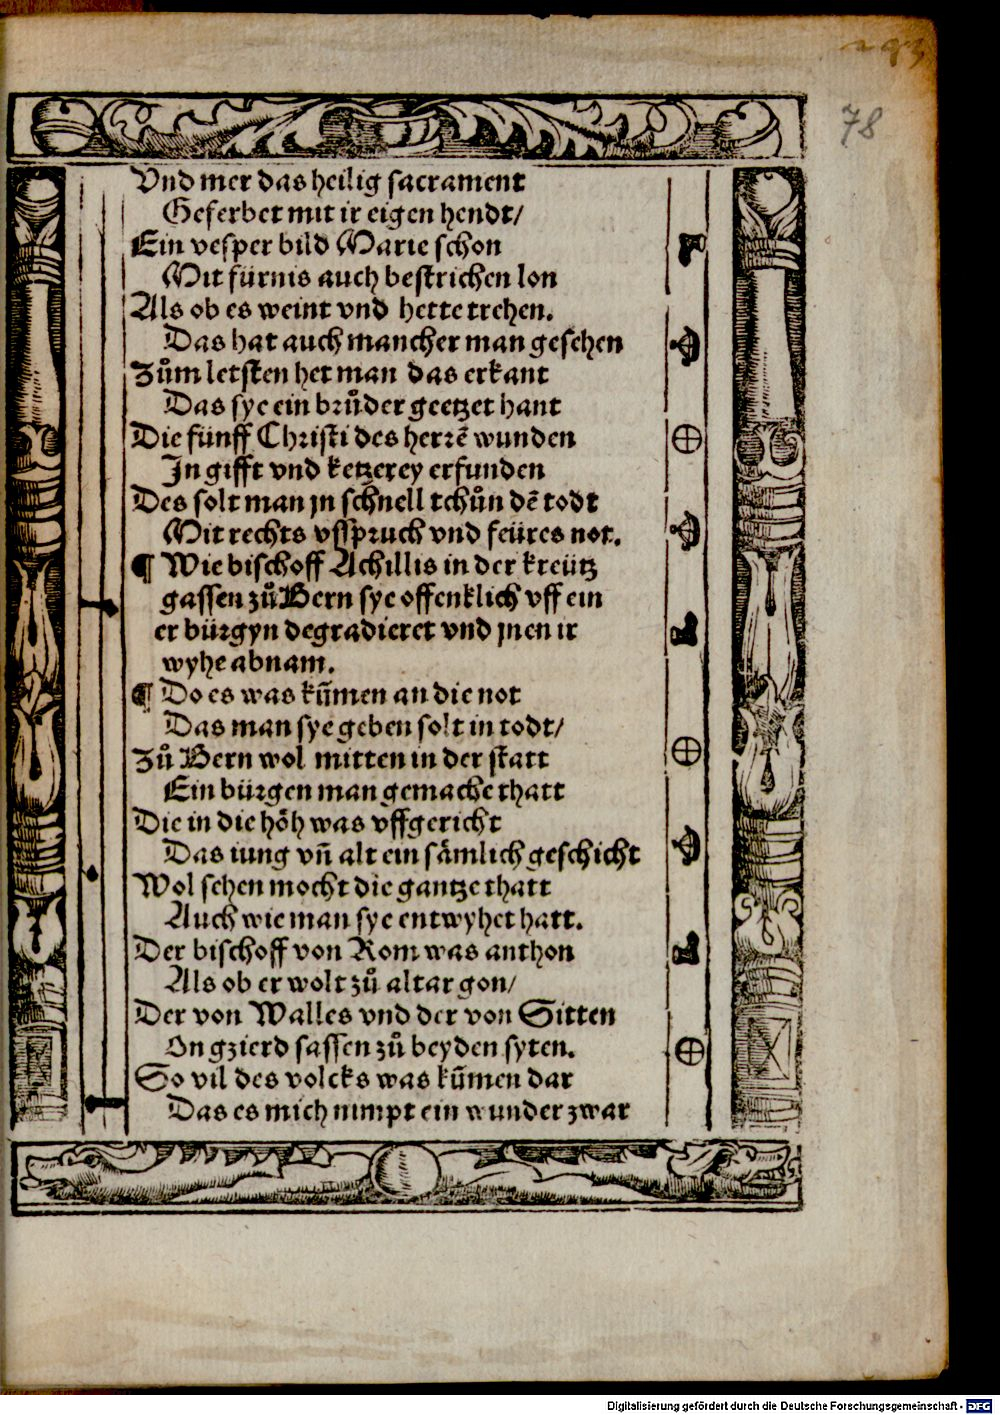 78
Vnd mer das heilig sacrament
Geferbet mit ir eigen hendt/
Ein vesper bild Marie schon
Mit fürnis auch bestrichen lon
Als ob es weint vnd hette trehen.
Das hat auch mancher man gesehen
Zům letsten het man das erkant
Das sye ein brůder geetzet hant
Die fünff Christi des herrē wunden
In gifft vnd ketzerey erfunden
Des solt man jn schnell tchůn dē todt
Mit rechts vsspruch vnd feüres not.
¶ Wie bischoff Achillis in der kreütz
gassen zů Bern sye offenklich vff ein
er bürgyn degradieret vnd jnen ir
wyhe abnam.
¶ Do es was kūmen an die not
Das man sye geben solt in todt/
Zů Bern wol mitten in der statt
Ein bürgen man gemache thatt
Die in die höh was vffgericht
Das iung vñ alt ein sämlich geschicht
Wol sehen mocht die gantze thatt
Auch wie man sye entwyhet hatt.
Der bischoff von Rom was anthon
Als ob er wolt zů altar gon/
Der von Walles vnd der von Sitten
On gzierd sassen zů beyden syten.
So vil des volcks was kūmen dar
Das es mich nimpt ein wunder zwar
Digitalisierung gefördert durch die Deutsche Forschungsgemeinschaft - DFG